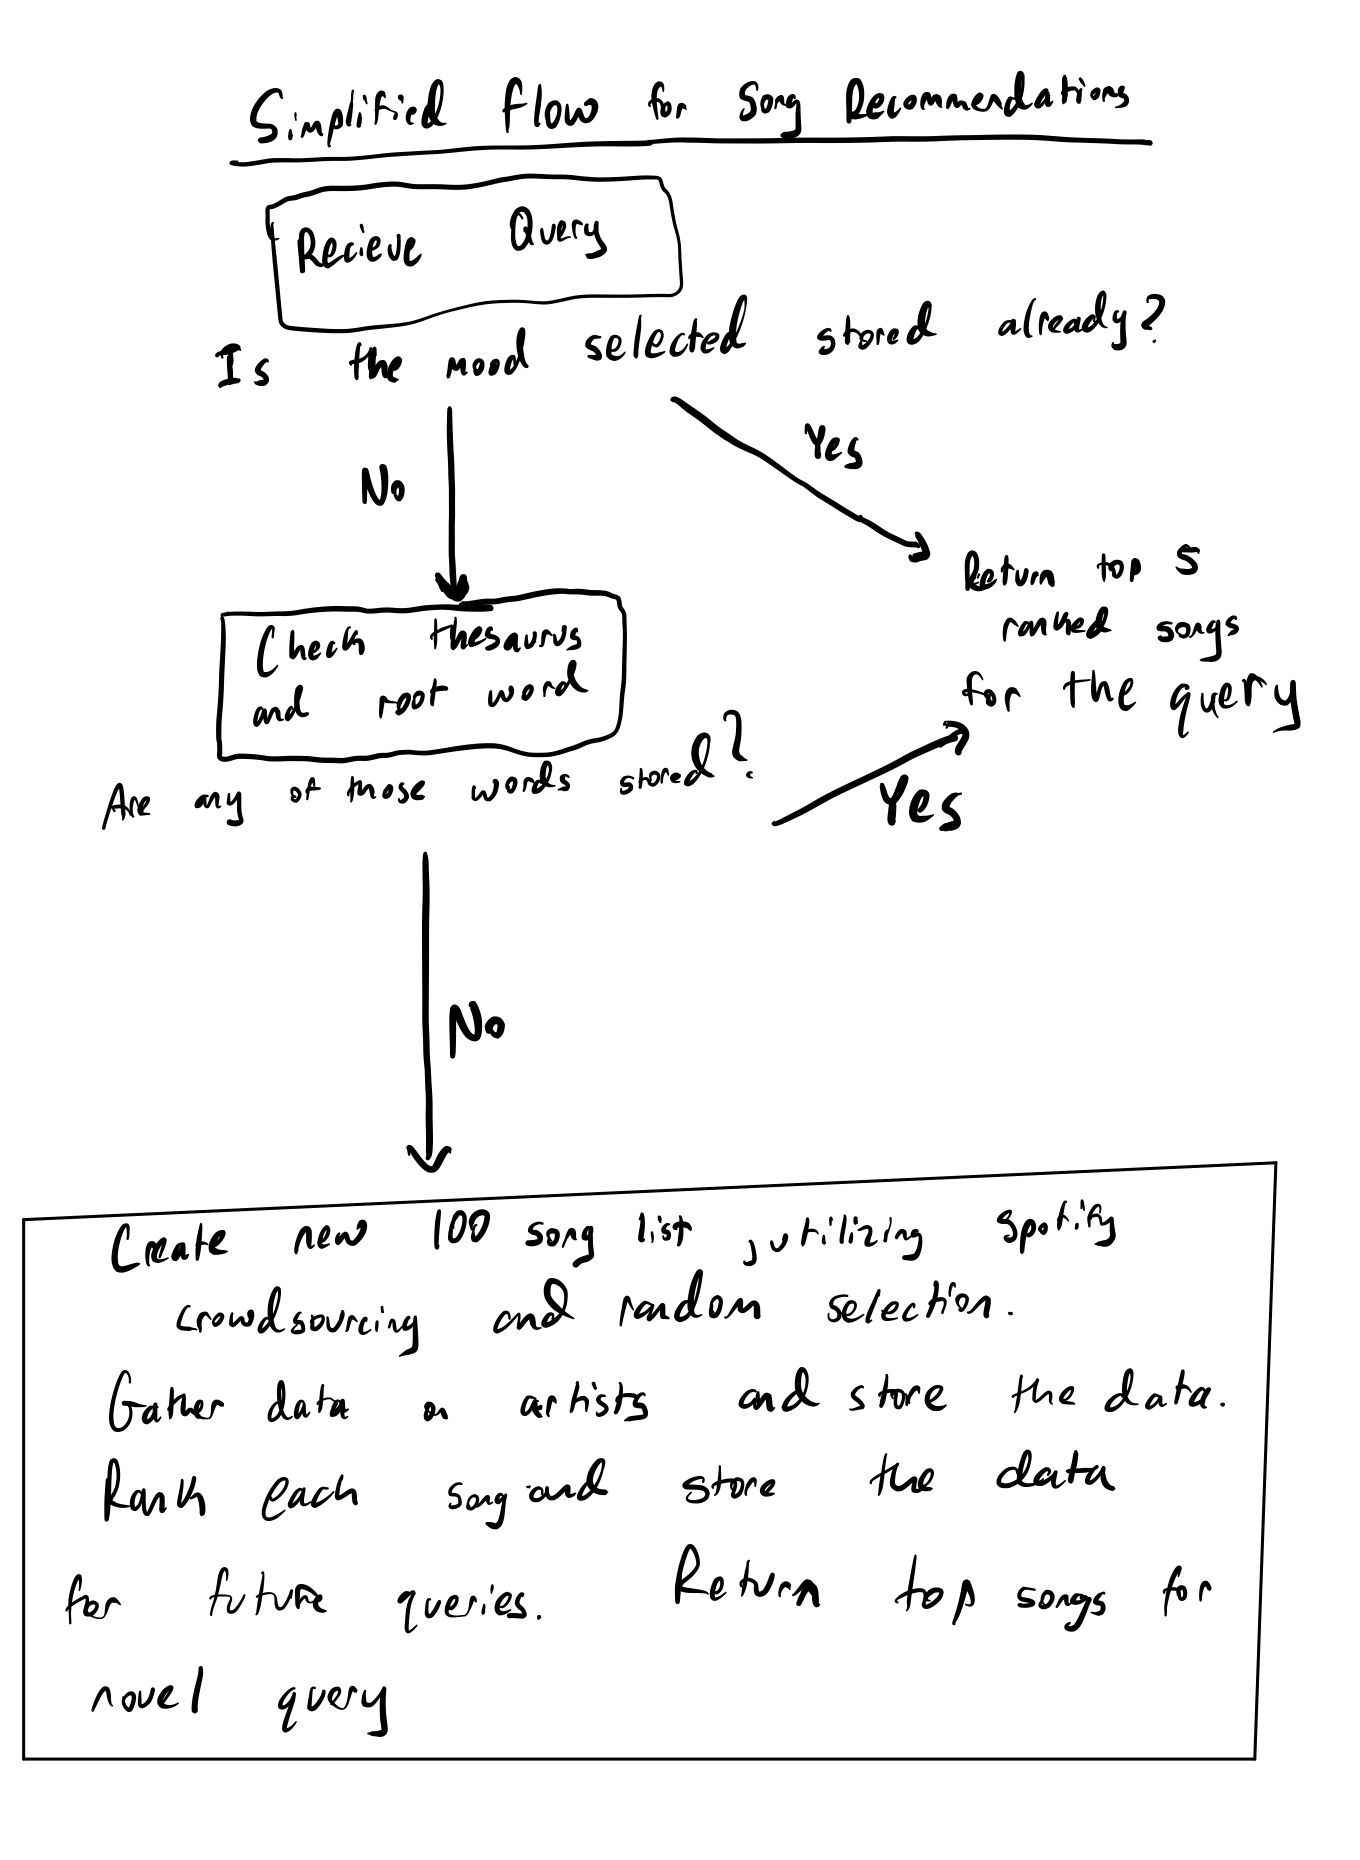 Simplified Flow for Song Recommendations
Recieve Query
Is the mood selected stored already?
No
Yes
Return top 5
ranked songs
for the query
Check thesaurus
and root word
Are any of those words stored?
Yes
No
Create new 100 song list, utilizing spotify
crowdsourcing and random selection.
Gather data on artists and store the data.
Rank each song and store the data
for future queries. Return top songs for
novel query